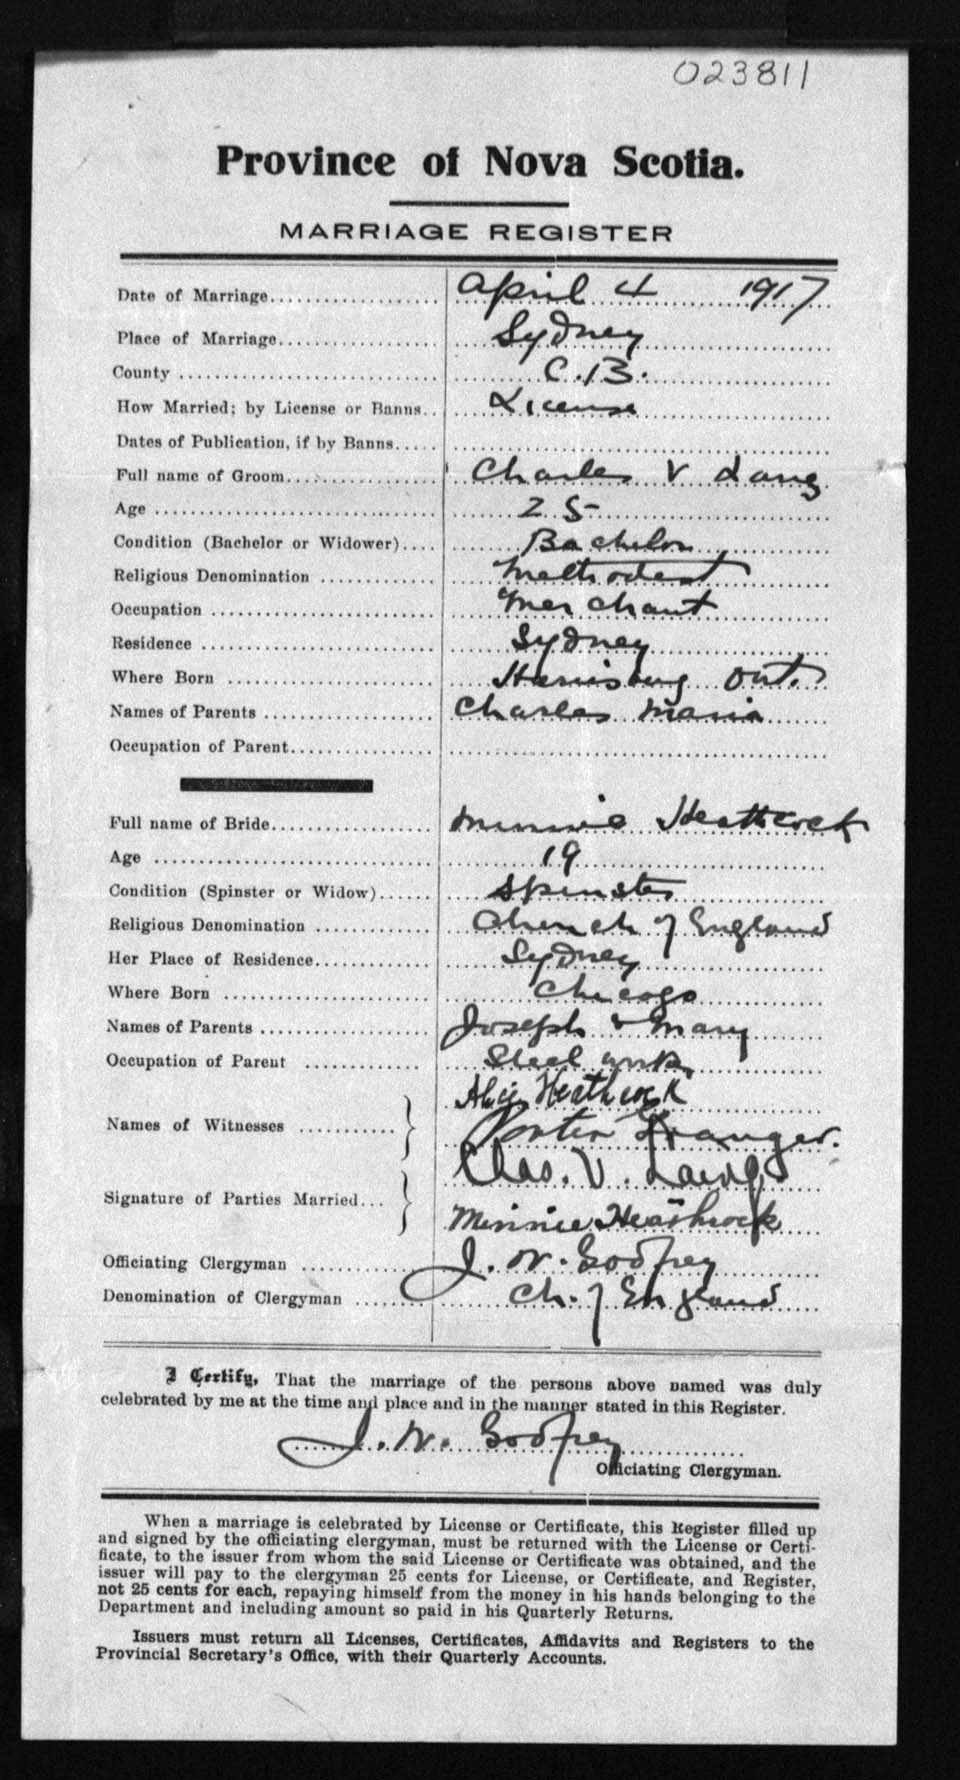 023811
Province of Nova Scotia.
MARRIAGE REGISTER
Date of Marriage April 4 1917
Place of Marriage Sydney
County C.B.
How Married; by License or Banns License
Dates of Publication, if by Banns
Full name of Groom Charles V Lang
Age 25
Condition (Bachelor or Widower) Bachelor
Religious Denomination Methodist
Occupation Merchant
Residence Sydney
Where Born Harrisburg Ont.
Names of Parents Charles Maria
Occupation of Parent
Full name of Bride Minnie Heathcock
Age 19
Condition (Spinster or Widow) Spinster
Religious Denomination Church of England
Her Place of Residence Sydney
Where Born Chicago
Names of Parents Joseph & Mary
Occupation of Parent Steel
Heathcock
Names of Witnesses Porter Granger.
Chas. V. Laing
Signature of Parties Married
Minnie Heathcock
Officiating Clergyman J. W. Godfrey
Denomination of Clergyman Ch. of England
I Certify, That the marriage of the persons above named was duly
celebrated by me at the time and place and in the manner stated in this Register.
J. W. Godfrey
Officiating Clergyman.
When a marriage is celebrated by License or Certificate, this Register filled up
and signed by the officiating clergyman, must be returned with the License or Certi-
ficate, to the issuer from whom the said License or Certificate was obtained, and the
issuer will pay to the clergyman 25 cents for License, or Certificate, and Register,
not 25 cents for each, repaying himself from the money in his hands belonging to the
Department and including amount so paid in his Quarterly Returns.
Issuers must return all Licenses, Certificates, Affidavits and Registers to the
Provincial Secretary's Office, with their Quarterly Accounts.